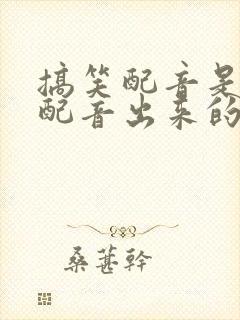 搞笑配音是
配音出来的
桑葚幹